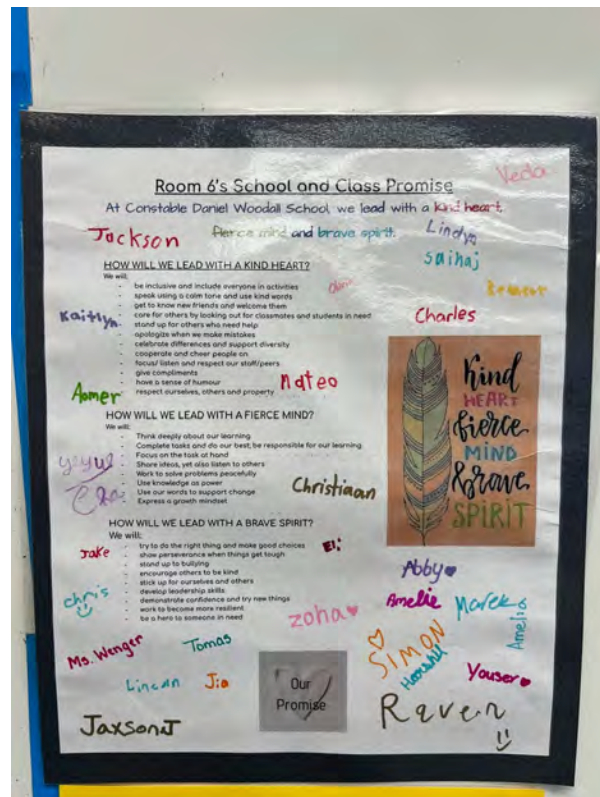 Veda
Room 6's School and Class Promise
At Constable Daniel Woodall School, we lead with a kind heart,
fierce mind and brave spirit.
Lindya
Jackson
Saihaj
HOW WILL WE LEAD WITH A KIND HEART?
We will:
- be inclusive and include everyone in activities
- speak using a calm tone and use kind words
- get to know new friends and welcome them
- care for others by looking out for classmates and students in need
- stand up for others who need help
- apologize when we make mistakes
- celebrate differences and support diversity
- cooperate and cheer people on
- focus/ listen and respect our staff/peers
- give compliments
- have a sense of humour
- respect ourselves, others and property
Kaitlyn
Charles
Aamer
Mateo
Kind
HEART
fierce
MIND
& brave
SPIRIT
HOW WILL WE LEAD WITH A FIERCE MIND?
We will:
- Think deeply about our learning
- Complete tasks and do our best, be responsible for our learning
- Focus on the task at hand
- Share ideas, yet also listen to others
- Work to solve problems peacefully
- Use knowledge as power
- Use our words to support change
- Express a growth mindset
Christiaan
HOW WILL WE LEAD WITH A BRAVE SPIRIT?
We will:
- try to do the right thing and make good choices
- show perseverance when things get tough
- stand up to bullying
- encourage others to be kind
- stick up for ourselves and others
- develop leadership skills
- demonstrate confidence and try new things
- work to become more resilient
- be a hero to someone in need
Jake
Eli
Abby
chris
Amelie
Marek
Amelia
zoha
SIMON
Ms. Wenger
Tomas
Youser
Lincoln
Jia
Our
Promise
Raven
JaxsonJ